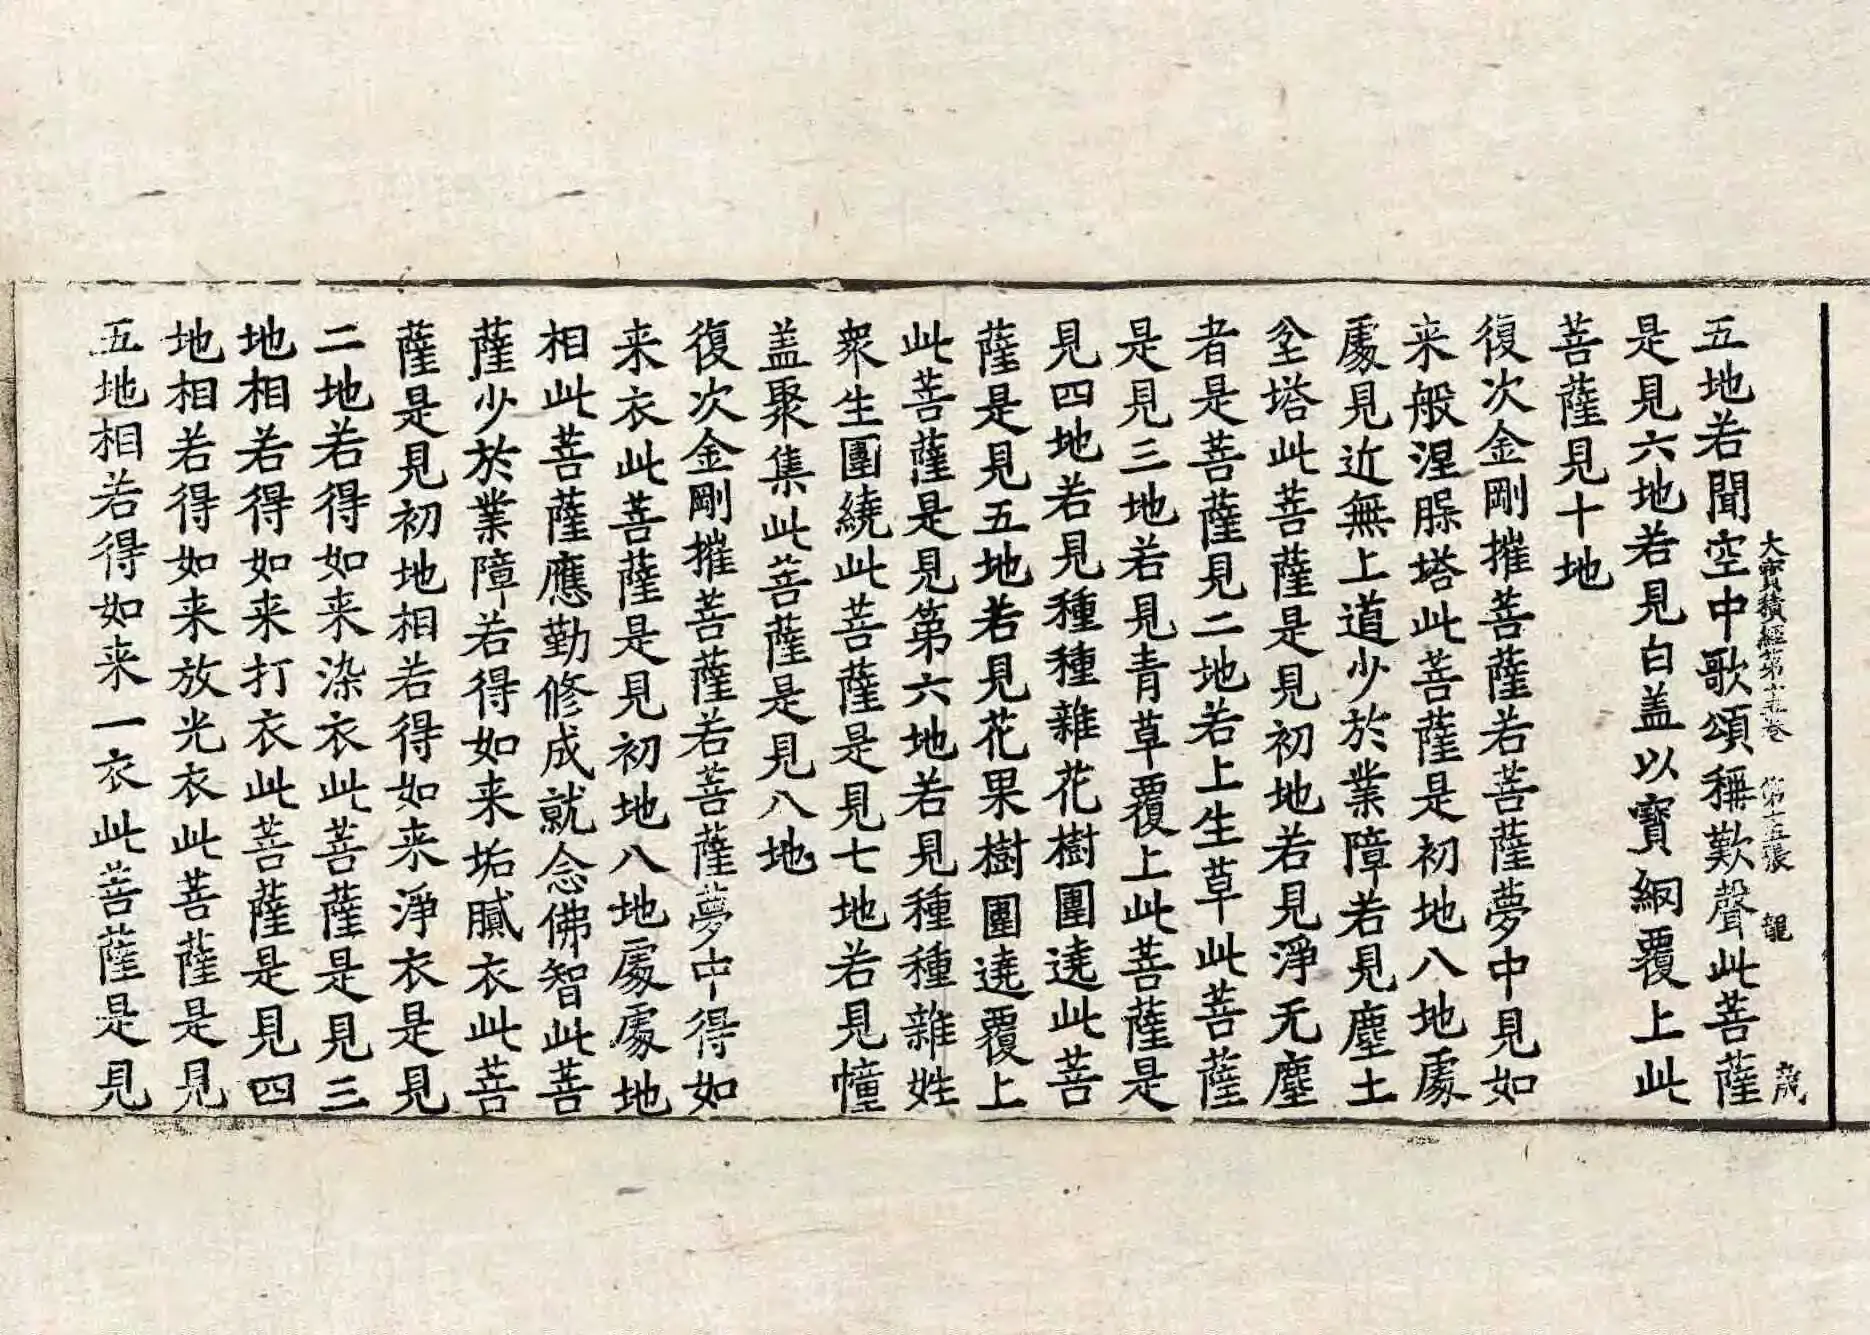 大寶積經第十五卷 第十五張 龍 成
五地若聞空中歌頌稱歎聲此菩薩
是見六地若見白盖以寶網覆上此
菩薩見十地
復次金剛摧菩薩若菩薩夢中見如
来般涅腺塔此菩薩是初地八地處
處見近無上道少於業障若見塵土
坌塔此菩薩是見初地若見淨无塵
者是菩薩見二地若上生草此菩薩
是見三地若見青草覆上此菩薩是
見四地若見種種雜花樹圍遶此菩
薩是見五地若見花果樹圍遶覆上
此菩薩是見第六地若見種種雜姓
衆生圍繞此菩薩是見七地若見幢
盖聚集此菩薩是見八地
復次金剛摧菩薩若菩薩夢中得如
来衣此菩薩是見初地八地處處地
相此菩薩應勤修成就念佛智此菩
薩少於業障若得如来垢膩衣此菩
薩是見初地相若得如来淨衣是見
二地若得如来染衣此菩薩是見三
地相若得如来打衣此菩薩是見四
地相若得如来放光衣此菩薩是見
五地相若得如来一衣此菩薩是見